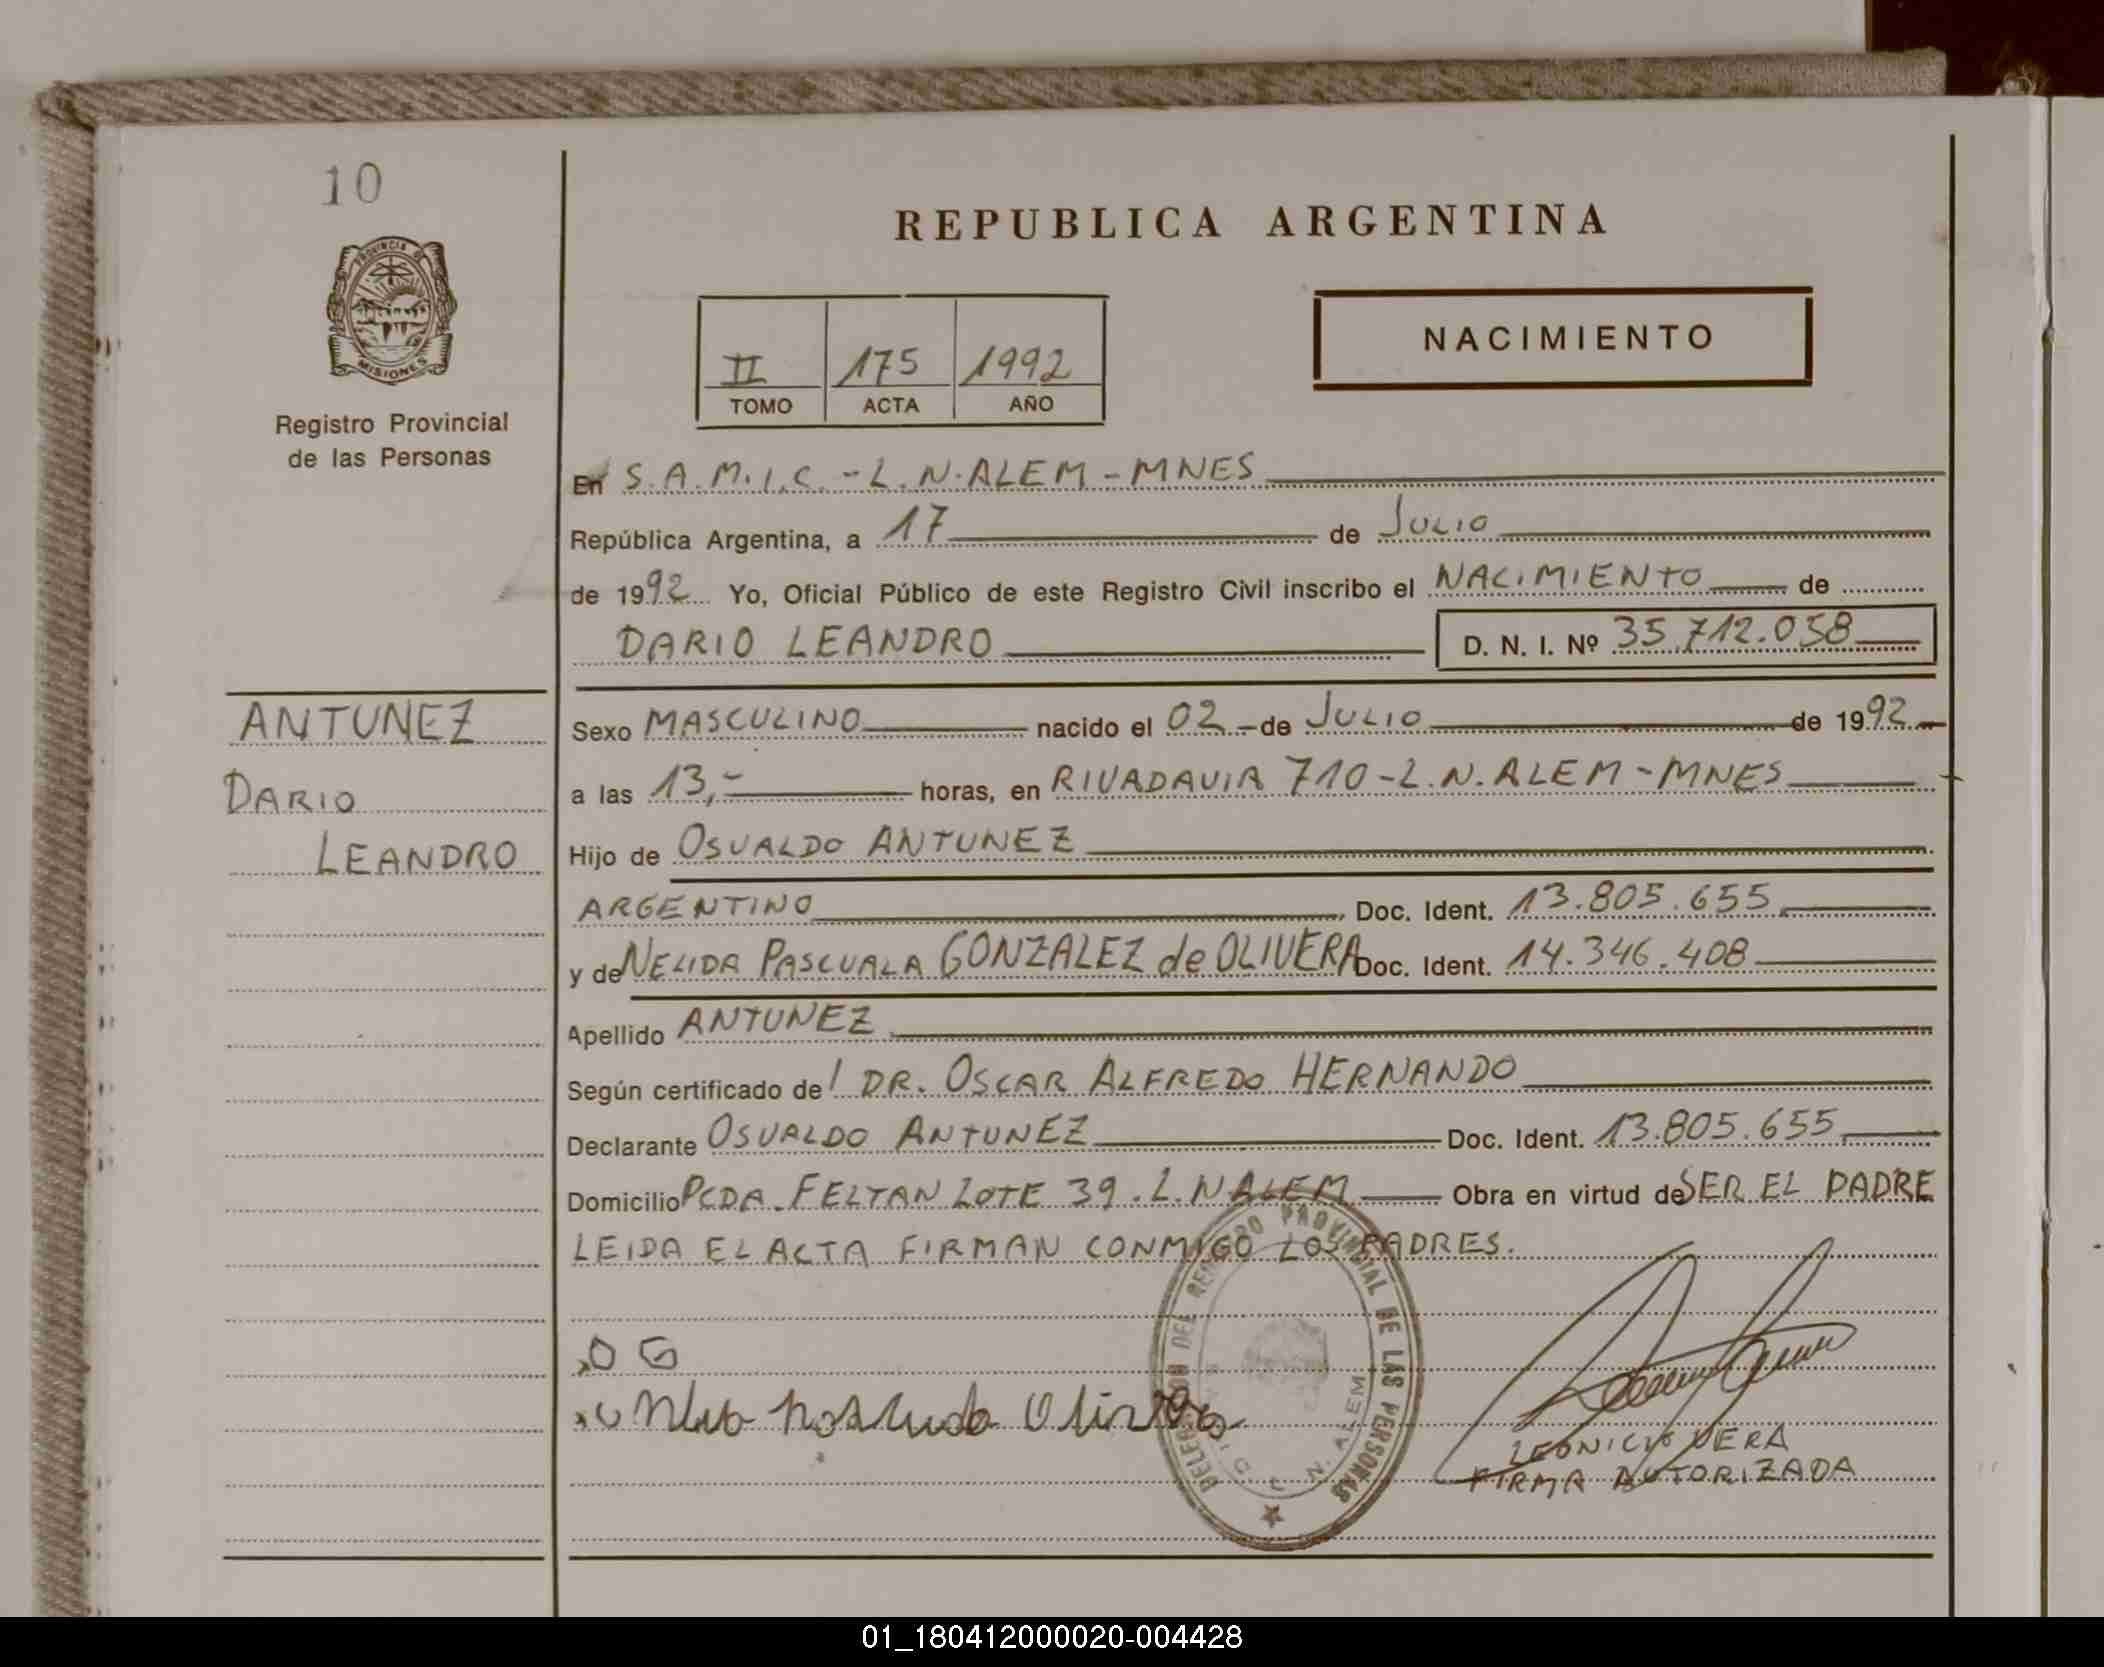 10
PROVINCIA
MISIONES
Registro Provincial
de las Personas
REPUBLICA ARGENTINA
II 175 1992
TOMO ACTA AÑO
NACIMIENTO
En S.A.M.I.C. - L.N. ALEM - MNES
República Argentina, a 17 de JULIO
de 1992 Yo, Oficial Público de este Registro Civil inscribo el NACIMIENTO de
DARIO LEANDRO D. N. I. Nº 35.712.058
ANTUNEZ
DARIO
LEANDRO
Sexo MASCULINO nacido el 02 - de JULIO de 1992
a las 13,- horas, en RIVADAVIA 710 - L.N. ALEM - MNES
Hijo de OSVALDO ANTUNEZ
ARGENTINO Doc. Ident. 13.805.655
y de NELIDA PASCUALA GONZALEZ de OLIVERA Doc. Ident. 14.346.408
Apellido ANTUNEZ
Según certificado de l DR. OSCAR ALFREDO HERNANDO
Declarante OSVALDO ANTUNEZ Doc. Ident. 13.805.655
Domicilio PCDA. FELTAN LOTE 39. L.N ALEM Obra en virtud de SER EL PADRE
LEIDA EL ACTA FIRMAN CONMIGO LOS PADRES.
DELEGACION DEL REGISTRO PROVINCIAL DE LAS PERSONAS
L. N. ALEM
LEONICIO VERA
FIRMA AUTORIZADA
01_180412000020-004428